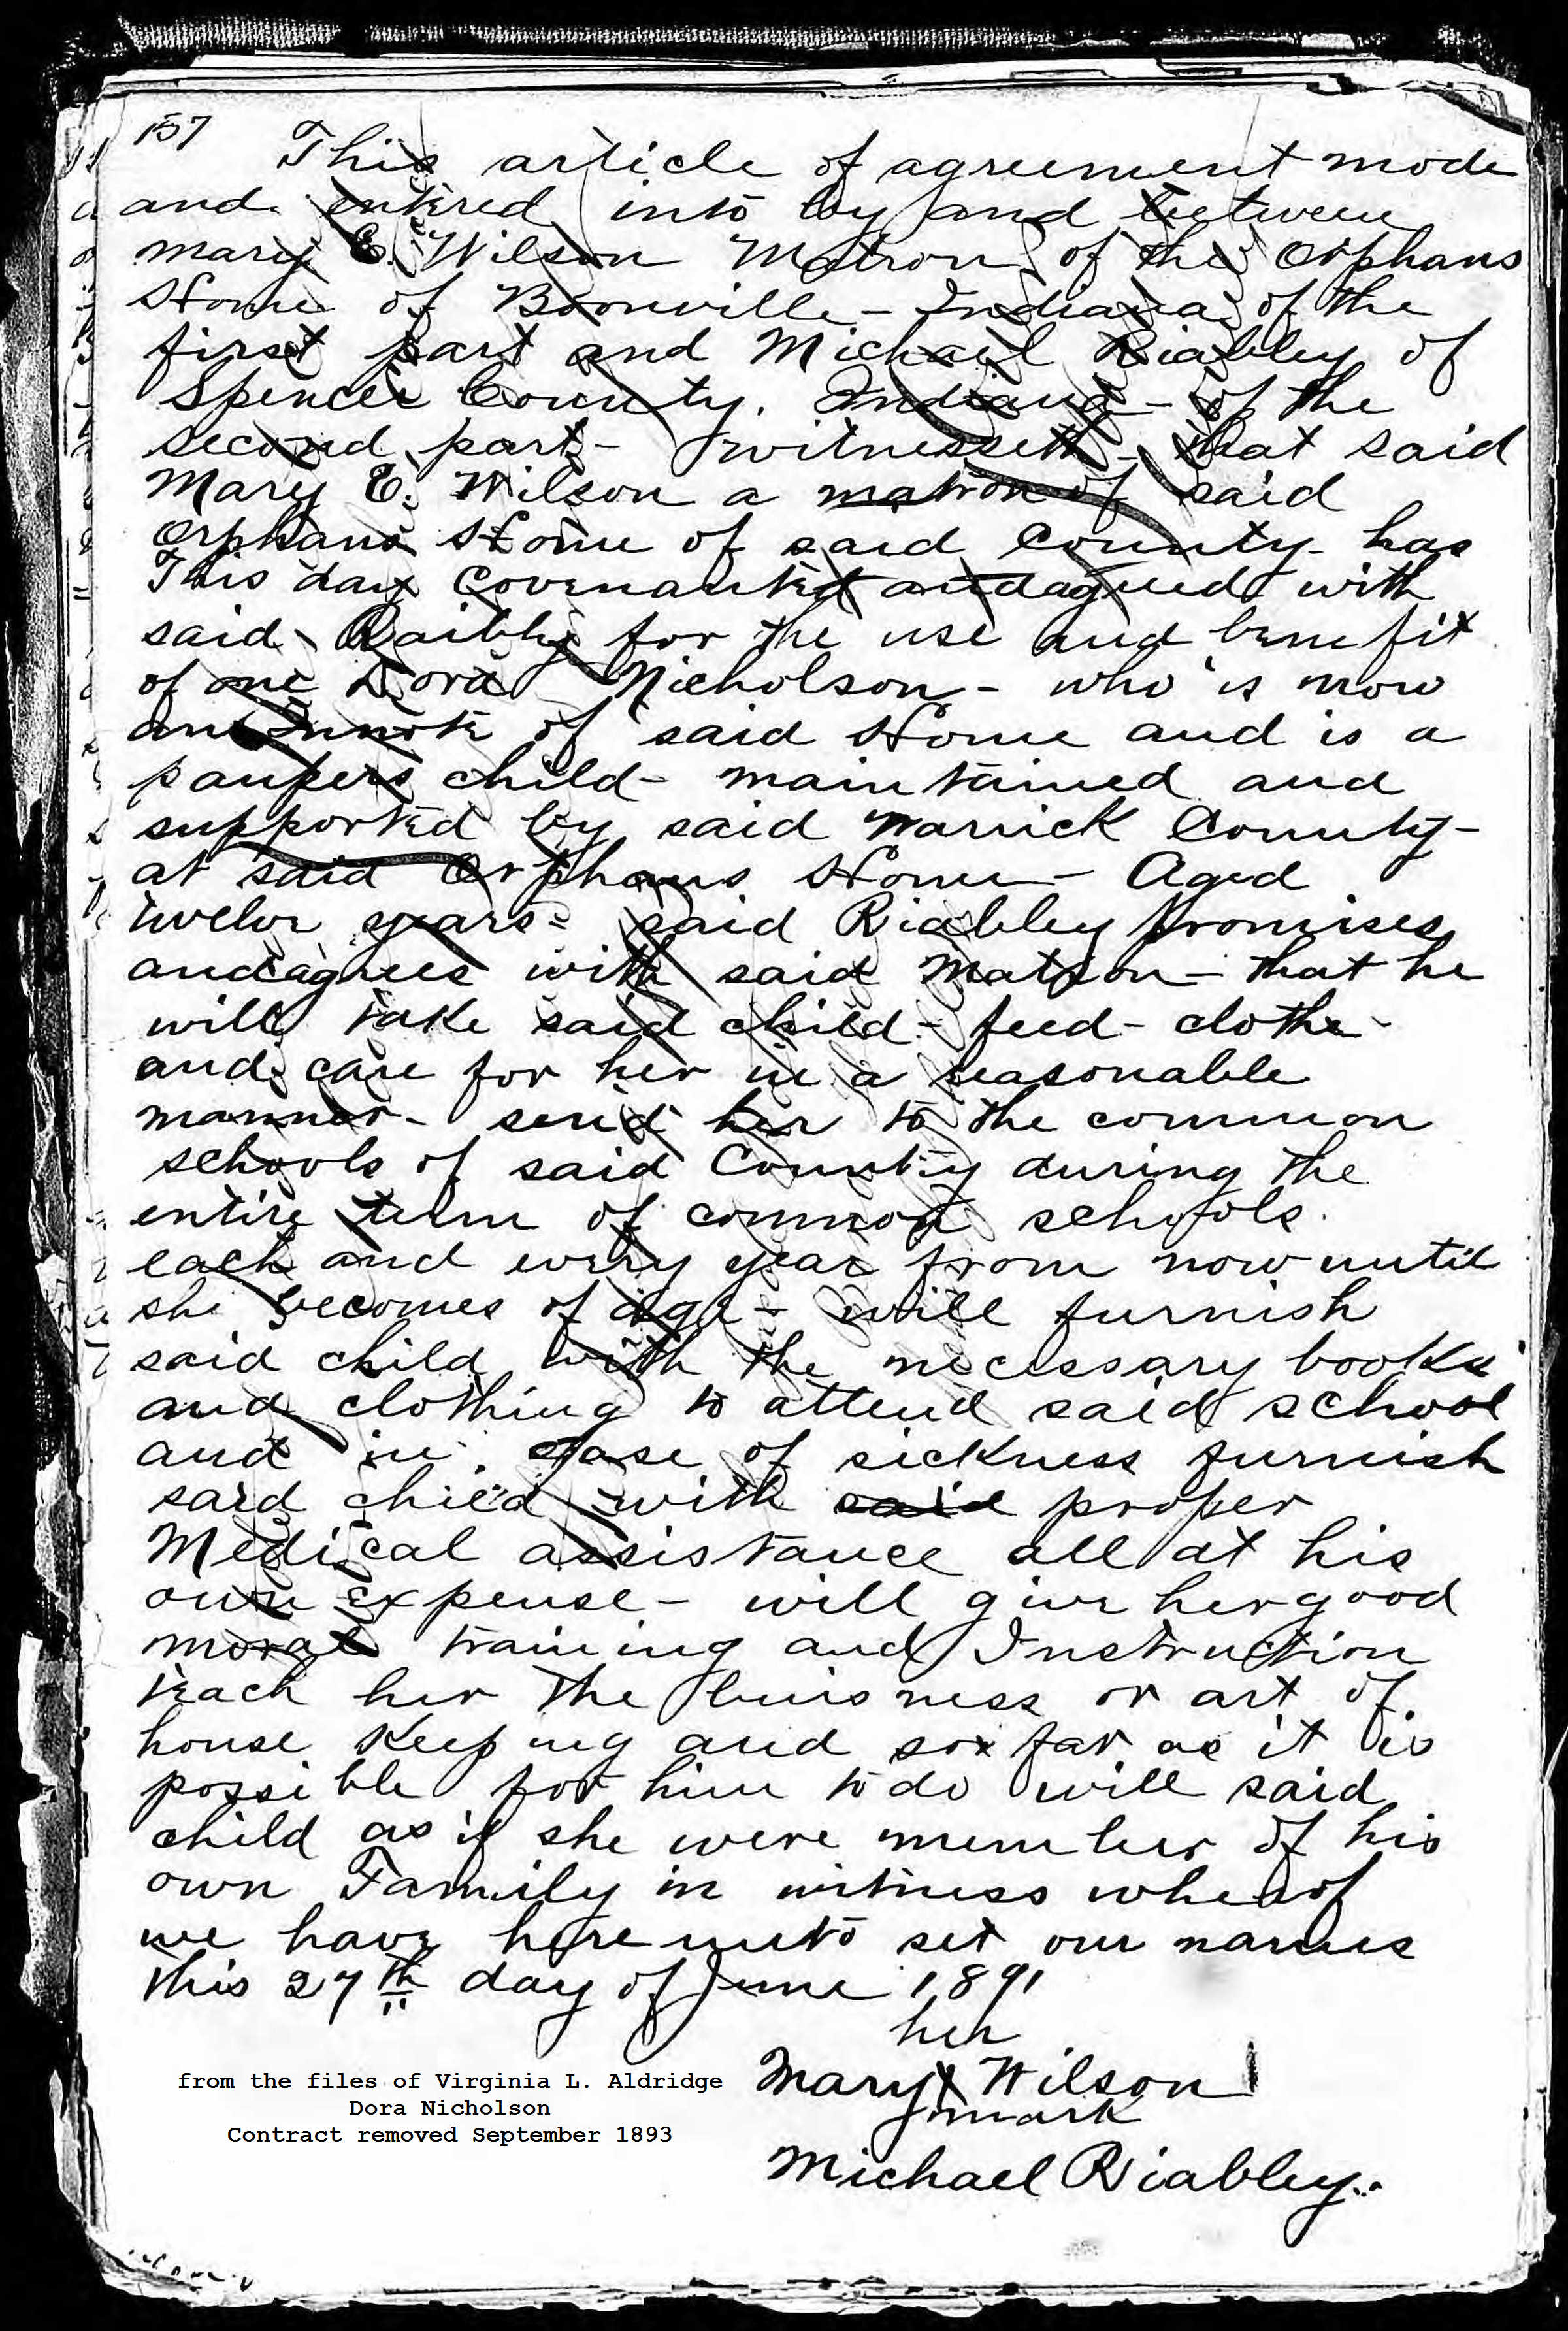 157
This article of agreement made
and entered into by and between
mary E. Wilson Matron of the Orphans
Home of Boonville - Indiana of the
first part and Michael Riabley of
Spencer County. Indiana - of the
second part - witnesseth - that said
Mary E. Wilson a matron of said
Orphans Home of said County - has
This day Covenanted and agreed with
said Raibly for the use and benefit
of one Dora Nicholson - who is now
an Inmate of said Home and is a
paupers child - maintained and
supported by said Warrick County -
at said Orphans Home - Aged
twelve years - said Riabley promises
and agrees with said Matron - that he
will take said child - feed - clothe -
and care for her in a reasonable
manner - send her to the common
schools of said County during the
entire term of common schools.
each and every year from now until
she becomes of age - will furnish
said child with the necessary books
and clothing to attend said school
and in case of sickness furnish
said child with said proper
Medical assistance all at his
own expense - will give her good
moral training and Instruction
teach her the buisness or art of
house Keeping and so far as it is
possible for him to do will said
child as if she were member of his
own Family in witness wherof
we have here unto set our names
this 27th day of June 1891
her
Mary X Wilson
mark
Michael Riabley.
from the files of Virginia L. Aldridge
Dora Nicholson
Contract removed September 1893